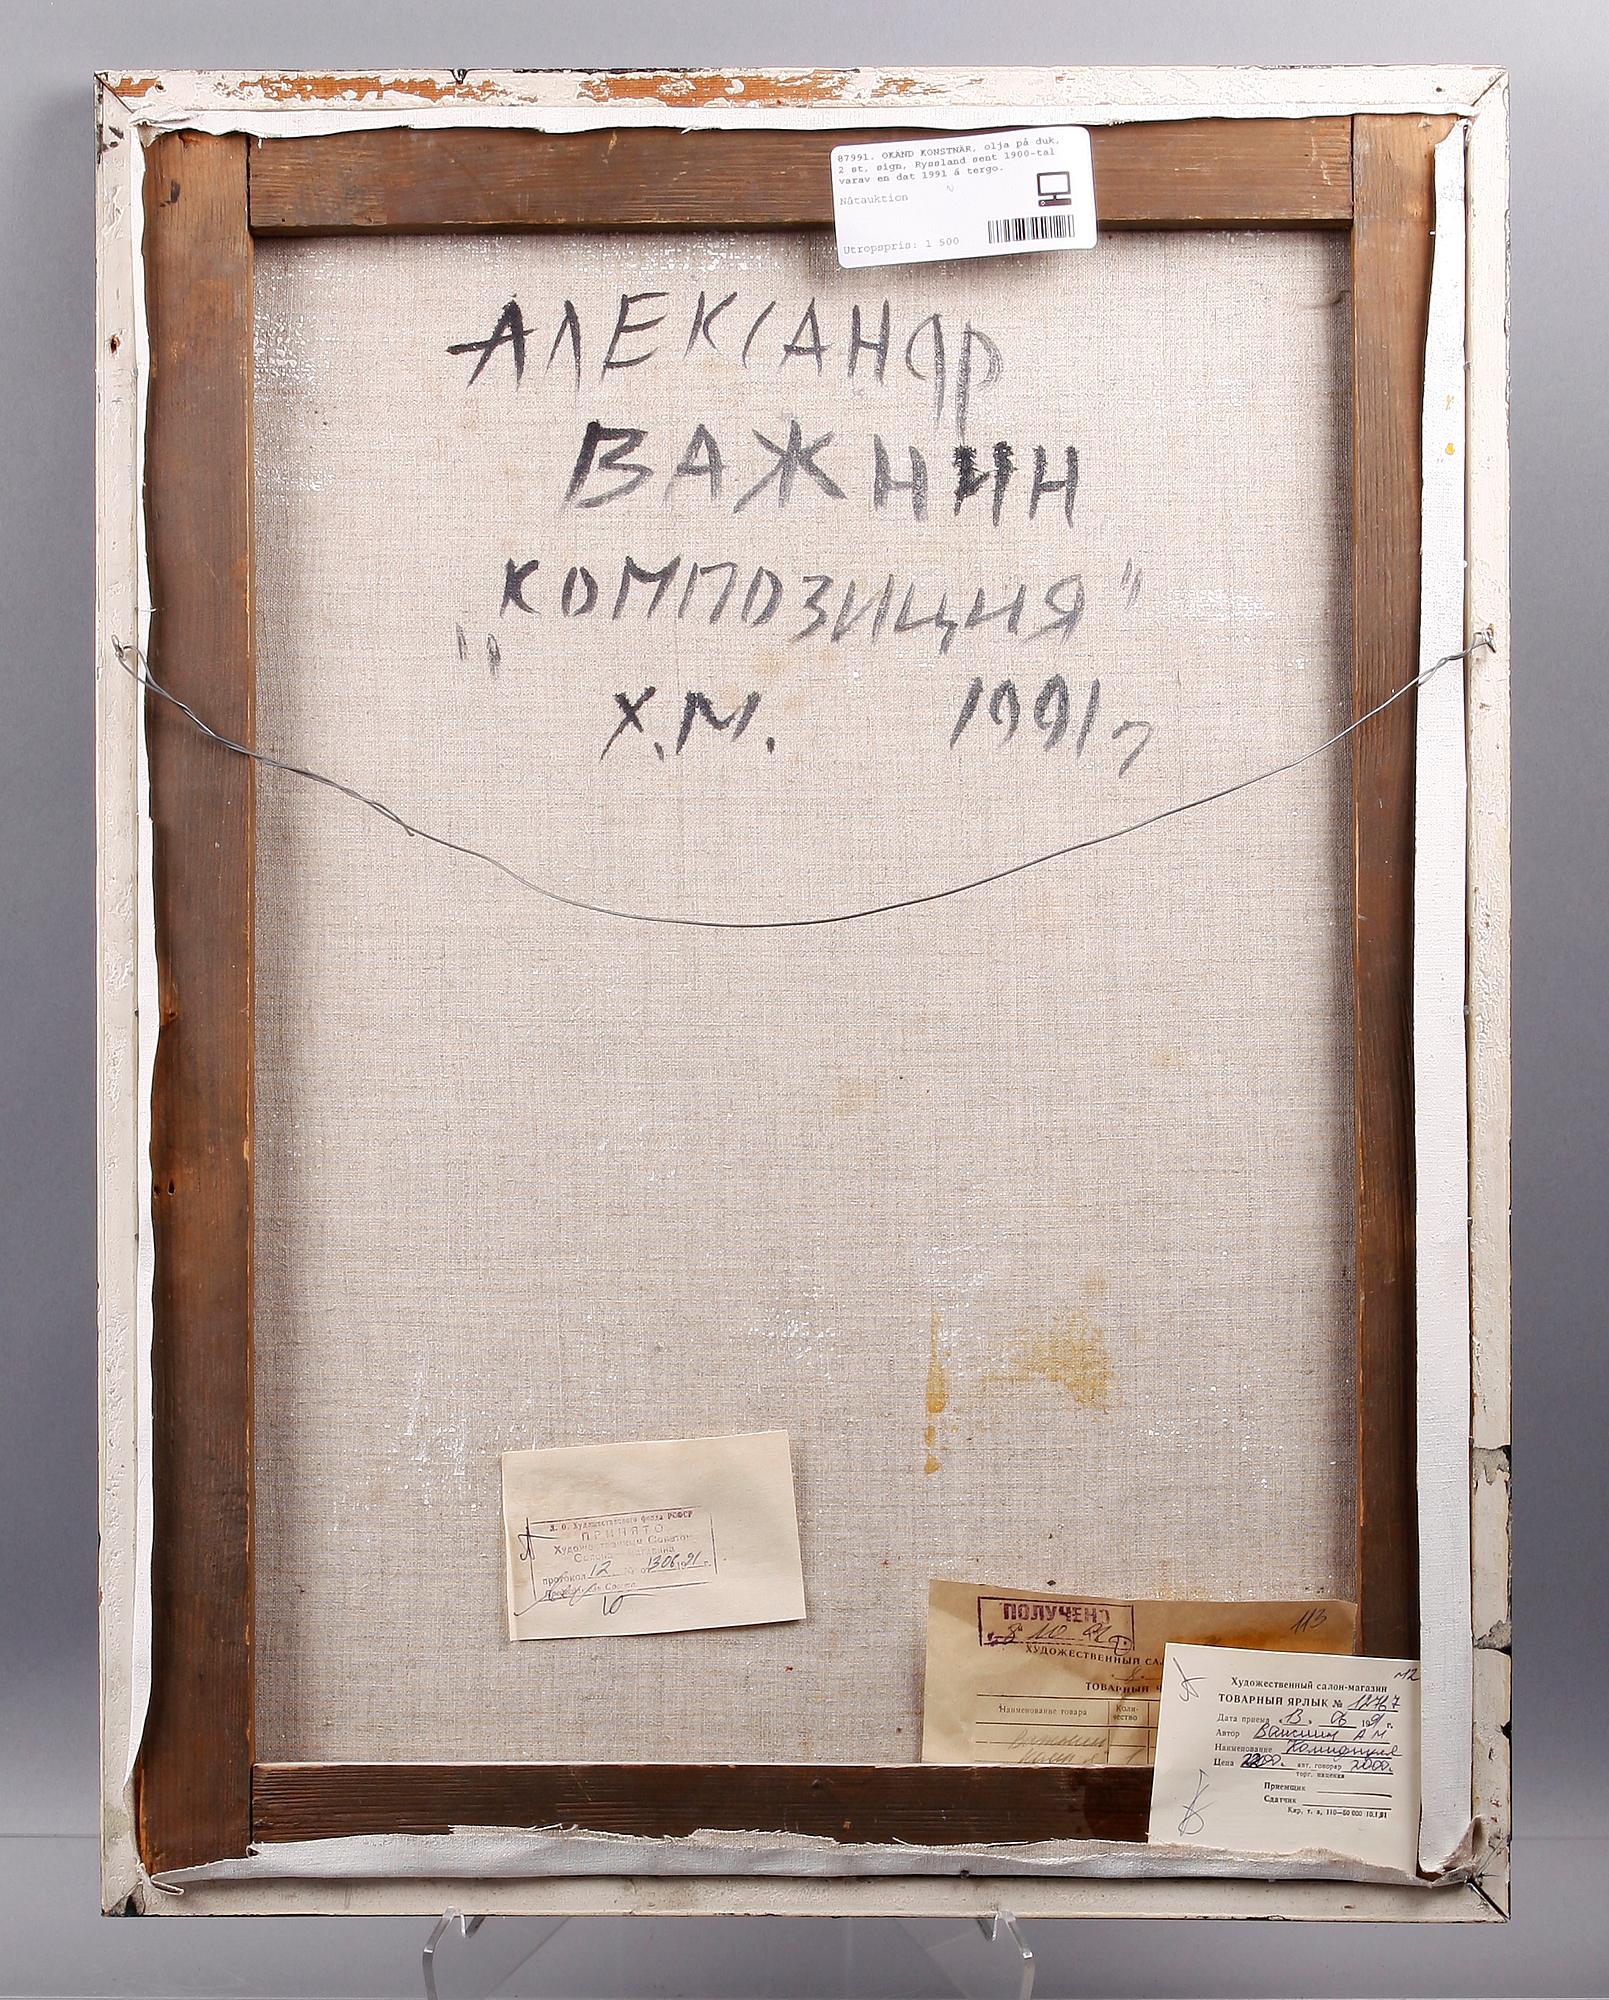 87991. OKÄND KONSTNÄR, olja på duk,
2 st, sign, Ryssland sent 1900-tal
varav en dat 1991 á tergo.
Nätauktion
Utropspris: 1 500
АЛЕКСАНДР
ВАЖНИН
"КОМПОЗИЦИЯ"
Х.М. 1991г
Л. О. Художественного фонда РСФСР
ПРИНЯТО
Художественным Советом
Салона магазина
протокол 12 № от 13 06 1991 г.
10
ПОЛУЧЕНО
113
ХУДОЖЕСТВЕННЫЙ СА
ТОВАРНЫЙ Ч
Наименование товара Коли-
чество
1
№2
Художественный салон-магазин
ТОВАРНЫЙ ЯРЛЫК № 12767
Дата приема 13. 06 1991 г.
Автор Важнин А М
Наименование Композиция
Цена авт. гонорар 2000.
торг. наценка
Приемщик
Сдатчик
Кир. т. з, 110—50 000 10.1.91